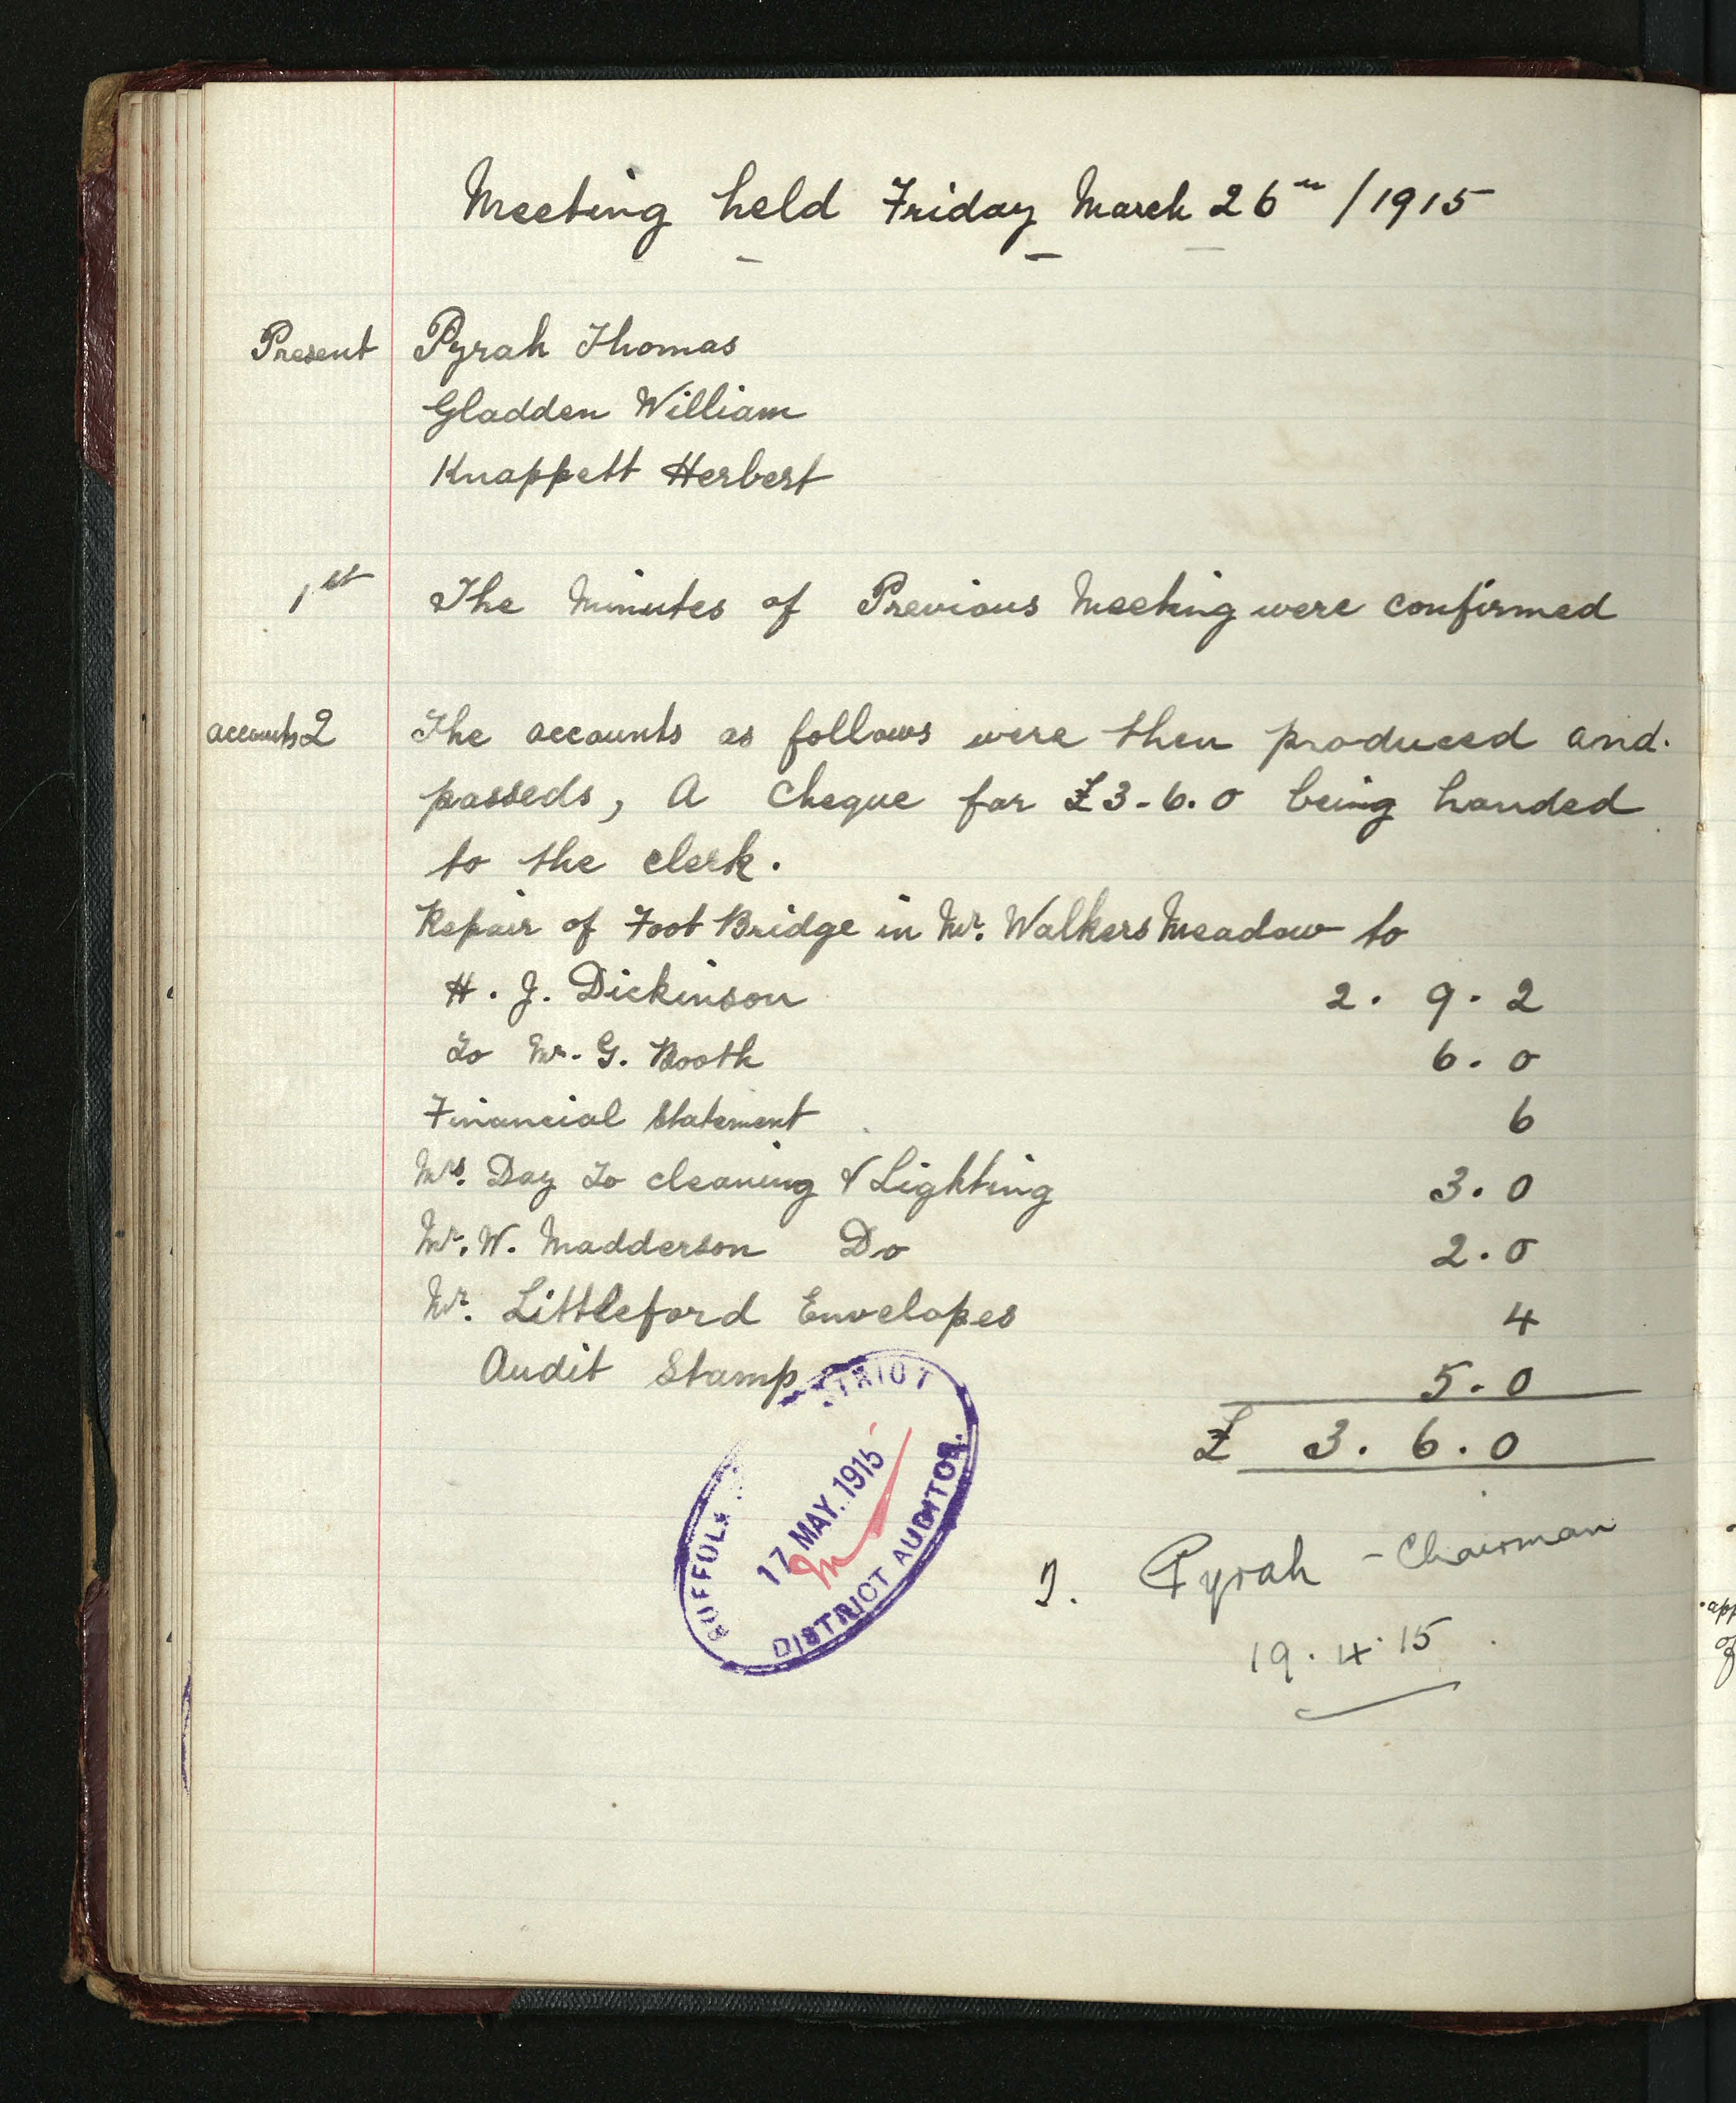 Meeting held Friday March 26th /1915
Present Pyrah Thomas
Gladden William
Knappett Herbert
1st The Minutes of Previous Meeting were confirmed
accounts 2 The accounts as follows were then produced and.
passeds, A Cheque for £3-6.0 being handed
to the clerk.
Repair of Foot Bridge in Mr. Walkers Meadow to
H. J. Dickinson 2. 9. 2
To Mr. G. Booth 6. 0
Financial Statement 6
Mrs. Day To cleaning & Lighting 3. 0
Mr. W. Madderson Do 2. 0
Mr. Littleford Envelopes 4
Audit Stamp 5. 0
£ 3. 6. 0
SUFFOLK
17 MAY. 1915
DISTRICT AUDITOR.
T. Pyrah - Chairman
19. 4. 15